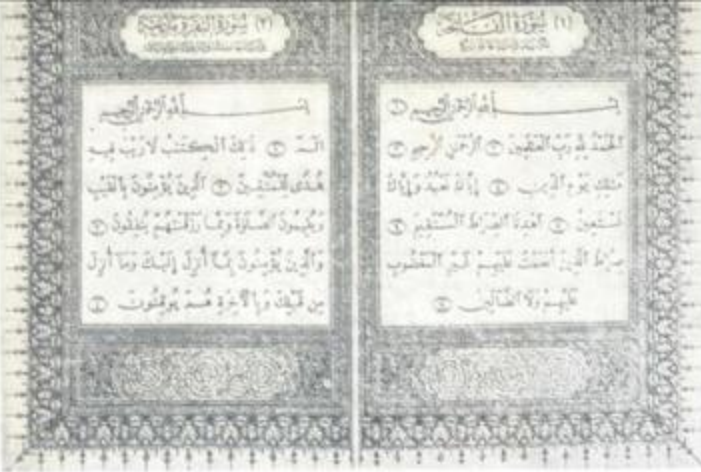 (١) سُورَةُ الفَاتِحَةِ
بِسْمِ اللَّهِ الرَّحْمَنِ الرَّحِيمِ ١
الْحَمْدُ لِلَّهِ رَبِّ الْعَالَمِينَ ٢ الرَّحْمَنِ الرَّحِيمِ ٣
مَالِكِ يَوْمِ الدِّينِ ٤ إِيَّاكَ نَعْبُدُ وَإِيَّاكَ
نَسْتَعِينُ ٥ اهْدِنَا الصِّرَاطَ الْمُسْتَقِيمَ ٦
صِرَاطَ الَّذِينَ أَنْعَمْتَ عَلَيْهِمْ غَيْرِ الْمَغْضُوبِ
عَلَيْهِمْ وَلَا الضَّالِّينَ ٧
(٢) سُورَةُ البَقَرَةِ مَدَنِيَّة
بِسْمِ اللَّهِ الرَّحْمَنِ الرَّحِيمِ
الٓمٓ ١ ذَلِكَ الْكِتَبُ لَا رَيْبَ فِيهِ
هُدًى لِلْمُتَّقِينَ ٢ الَّذِينَ يُؤْمِنُونَ بِالْغَيْبِ
وَيُقِيمُونَ الصَّلَوٰةَ وَمِمَّا رَزَقْنَاهُمْ يُنْفِقُونَ ٣
وَالَّذِينَ يُؤْمِنُونَ بِمَا أُنْزِلَ إِلَيْكَ وَمَا أُنْزِلَ
مِنْ قَبْلِكَ وَبِالْآخِرَةِ هُمْ يُوقِنُونَ ٤